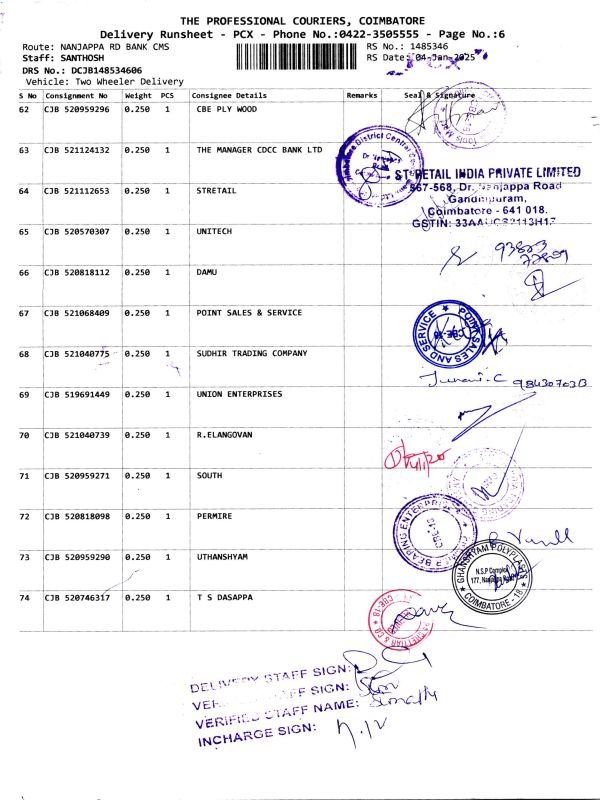 THE PROFESSIONAL COURIERS, COIMBATORE
Delivery Runsheet - PCX - Phone No.:0422-3505555 - Page No.:6
Route: NANJAPPA RD BANK CMS
RS No.: 1485346
Staff: SANTHOSH
RS Date: 04-Jan-2025
DRS No.: DCJB148534606
Vehicle: Two Wheeler Delivery
S No Consignment No Weight PCS Consignee Details Remarks Seal & Signature
62 CJB 520959296 0.250 1 CBE PLY WOOD
63 CJB 521124132 0.250 1 THE MANAGER CDCC BANK LTD
64 CJB 521112653 0.250 1 STRETAIL
ST RETAIL INDIA PRIVATE LIMITED
567-568, Dr. Nanjappa Road
Gandhipuram,
Coimbatore - 641 018.
65 CJB 520570307 0.250 1 UNITECH
66 CJB 520818112 0.250 1 DAMU
67 CJB 521068409 0.250 1 POINT SALES & SERVICE
POINT SALES AND SERVICE
CBE-18
68 CJB 521040775 0.250 1 SUDHIR TRADING COMPANY
9843070313
69 CJB 519691449 0.250 1 UNION ENTERPRISES
70 CJB 521040739 0.250 1 R.ELANGOVAN
71 CJB 520959271 0.250 1 SOUTH
72 CJB 520818098 0.250 1 PERMIRE
BEARING ENTERPRISES
CBE-18
73 CJB 520959290 0.250 1 UTHANSHYAM
GHANSHYAM POLYPLASTS
N.S.P Complex
177, Nanjappa Road
COIMBATORE - 18
74 CJB 520746317 0.250 1 T S DASAPPA
CBE-18
DELIVERY STAFF SIGN:
VERIFIED STAFF SIGN:
VERIFIED STAFF NAME: Sumathi
INCHARGE SIGN: